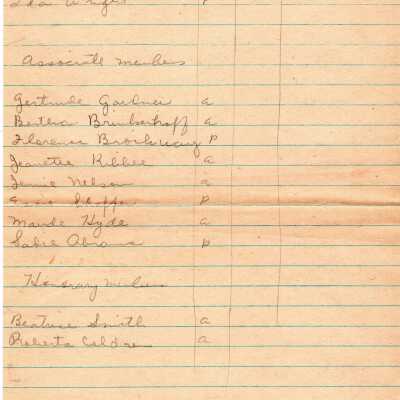 Ida Wright p
Associate members
Gertrude Gardner a
Bertha Brinkerhoff a
Florence Brockway p
Jeanette Kibbee a
Jennie Nelson a
p
Maude Hyde a
Sabie Abrams p
Honorary members
Beatrice Smith a
Roberta a